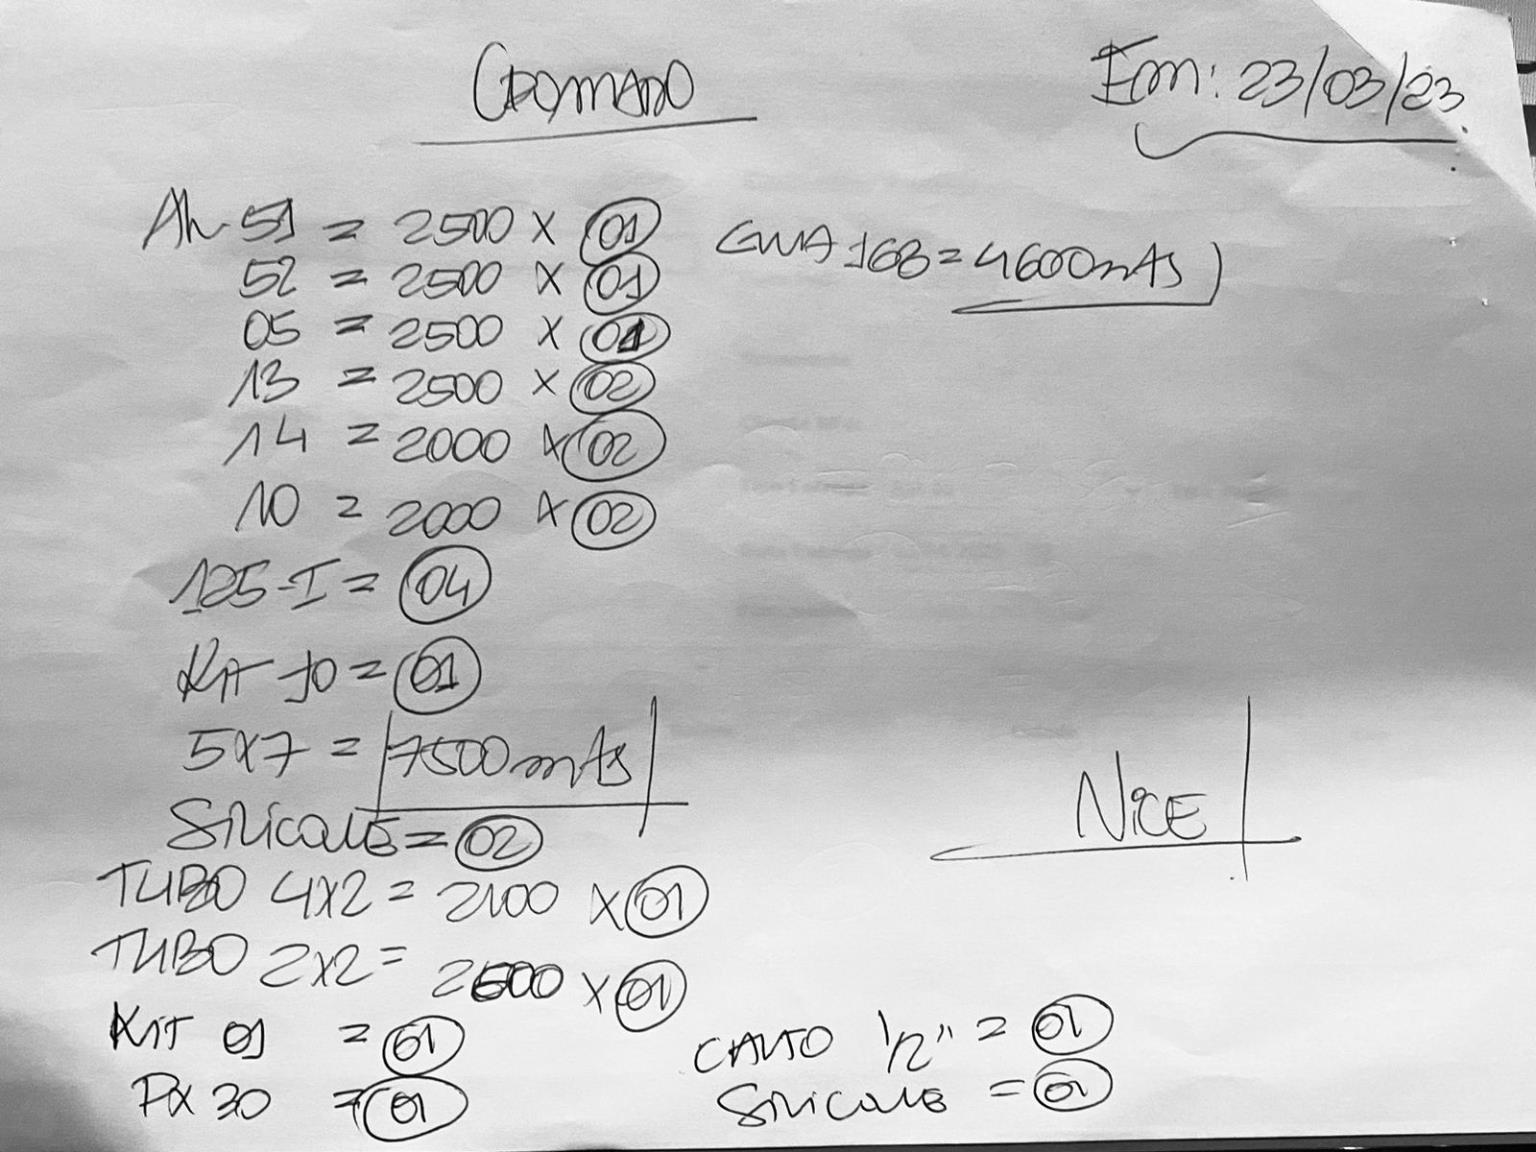 CROMADO
Em: 23/03/23
AL 51 = 2500 X 01
GUIA 168 = 4600 mts
52 = 2500 X 01
05 = 2500 X 01
13 = 2500 X 02
14 = 2000 X 02
10 = 2000 X 02
125-I = 04
Kit 10 = 01
5X7 = 7500 mts
NICE
SILICONE = 02
TUBO 4X2 = 2100 X 01
TUBO 2X2 = 2600 X 01
Kit 01 = 01
CANTO 1/2" = 01
PX 30 = 01
SILICONE = 01